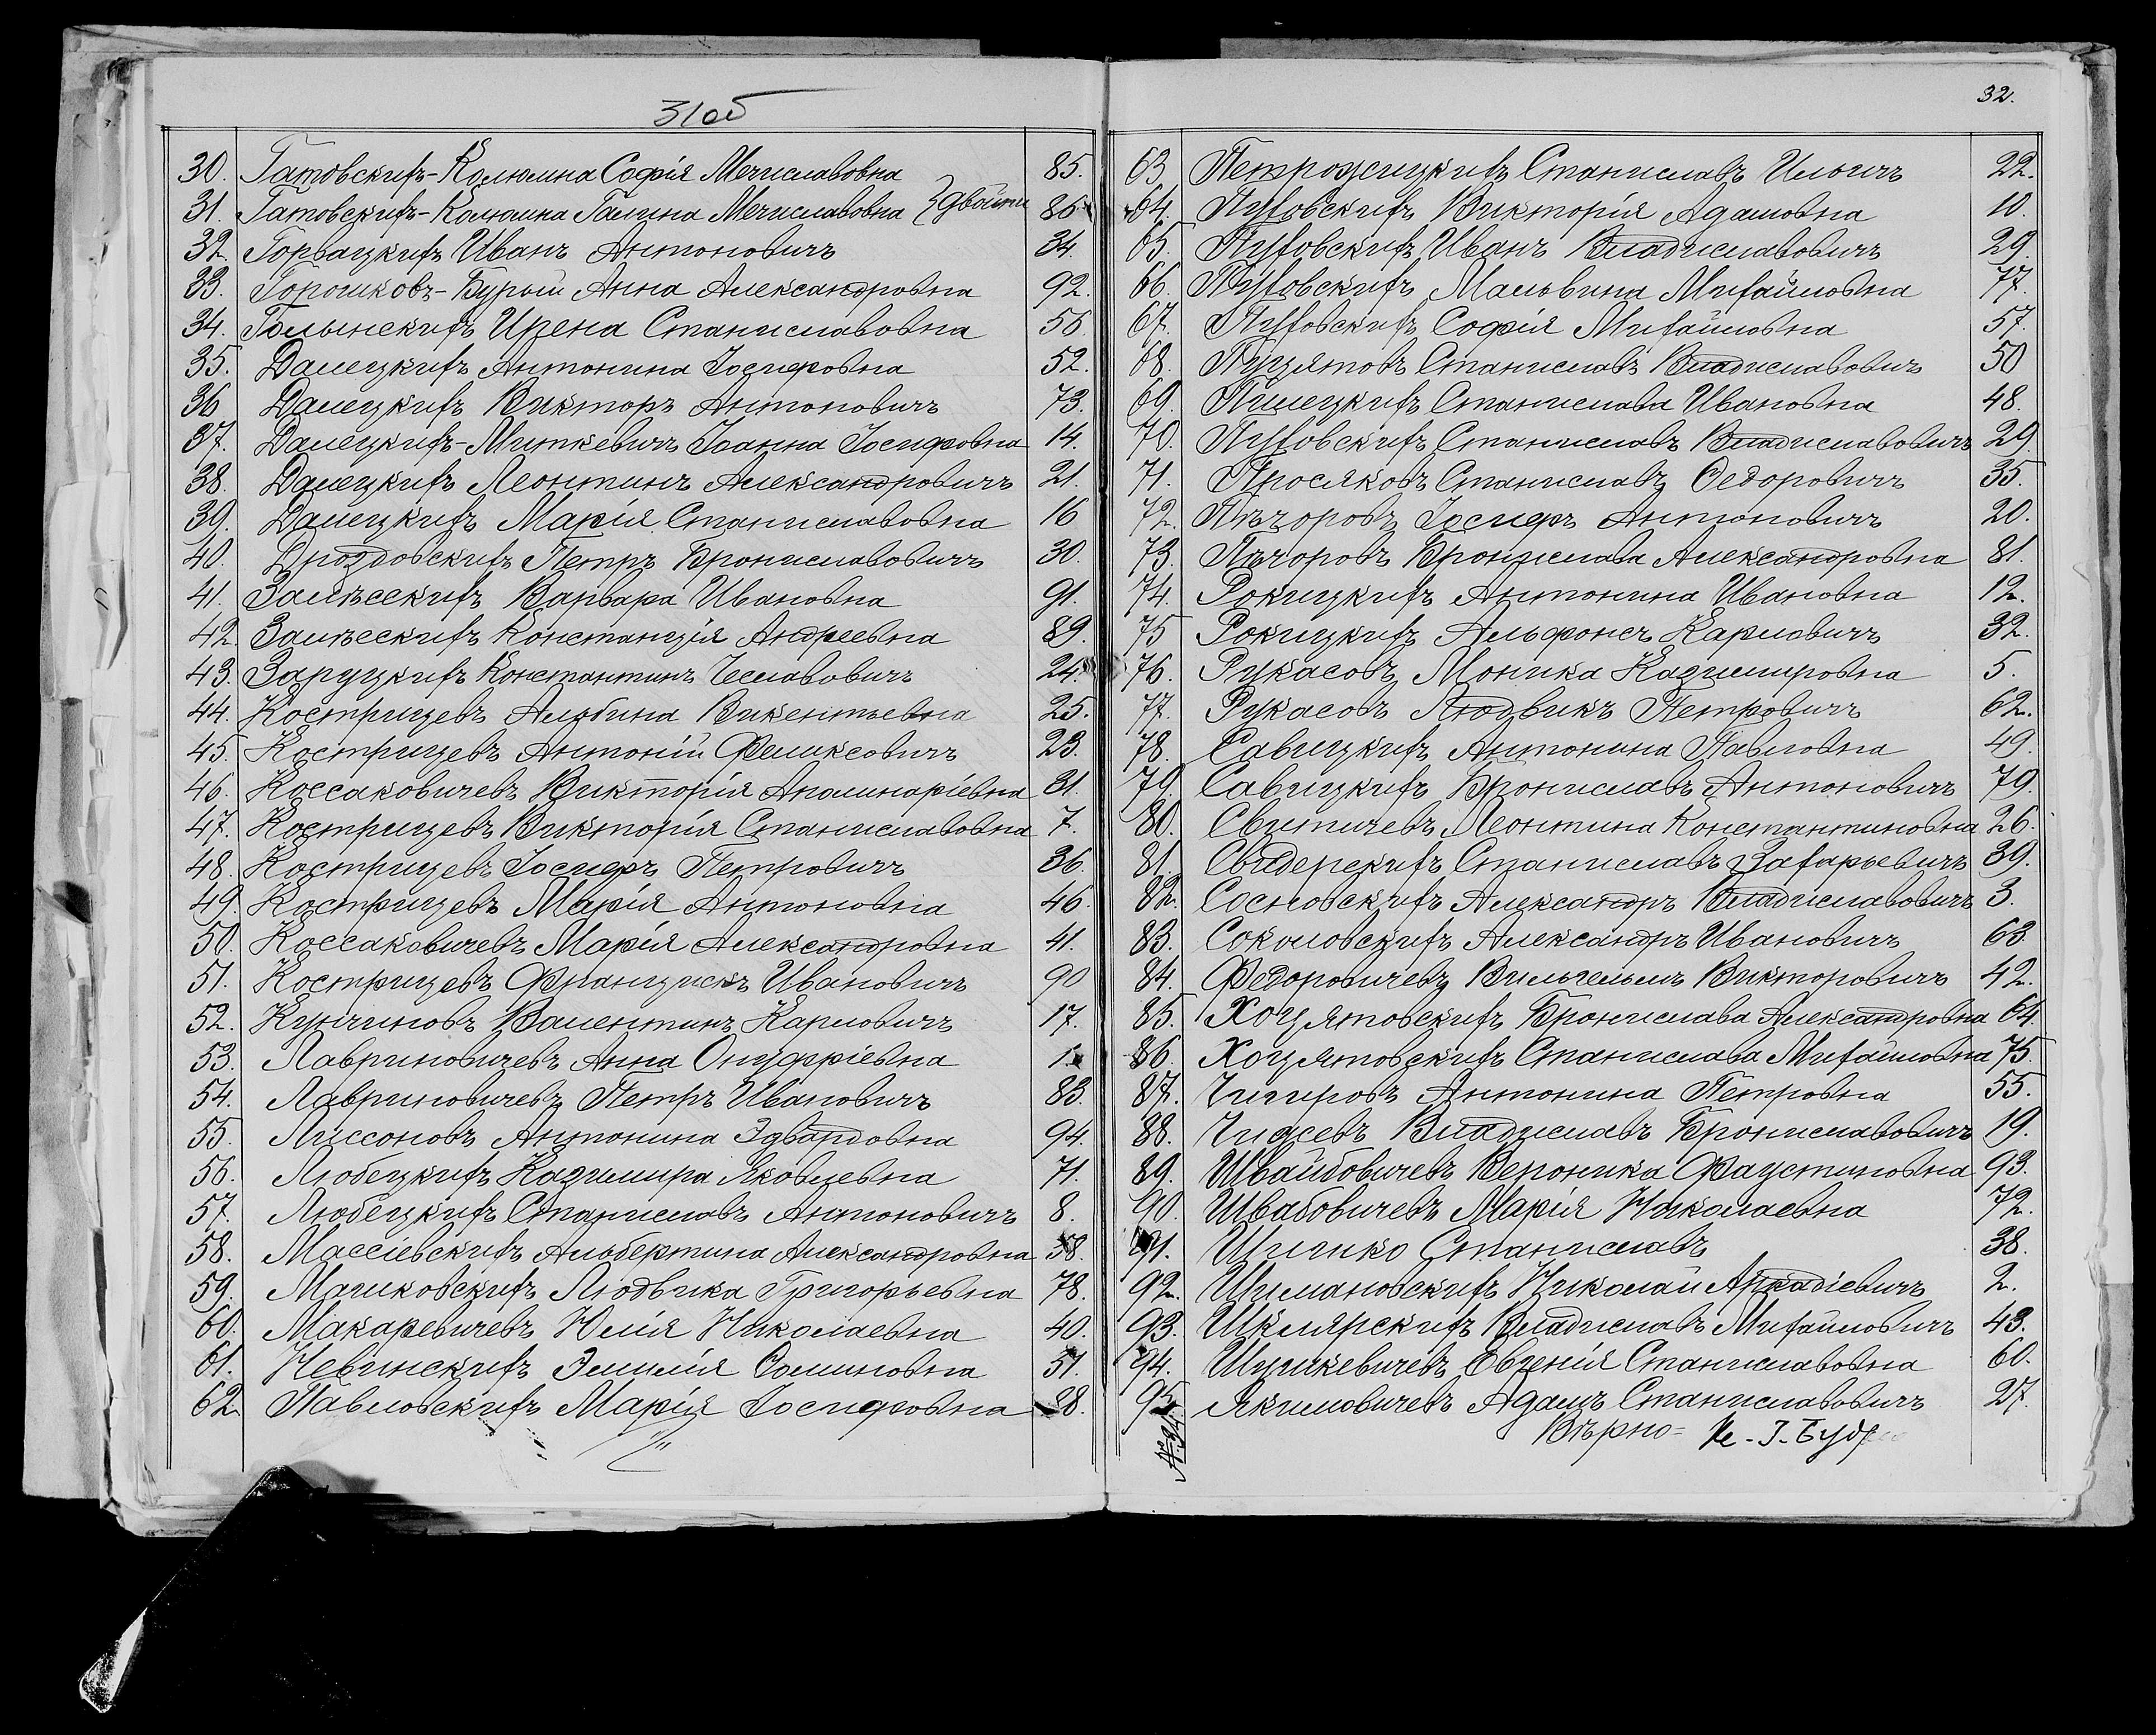 31об
30. Гатовскихъ-Колюмна Софія Мечиславовна 85.
31. Гатовскихъ-Колюмна Галина Мечиславовна }двойни 86.
32. Горвацкихъ Иванъ Антоновичъ 34.
33. Горошковъ-Бурый Анна Александровна 92.
34. Голынскихъ Ирена Станиславовна 56.
35. Далецкихъ Антонина Іосифовна 52.
36 Далецкихъ Викторъ Антоновичъ 73.
37. Далецкихъ-Миткевичъ Іоанна Іосифовна 14.
38. Далецкихъ Леонтинъ Александровичъ 21.
39. Далецкихъ Марія Станиславовна 16
40. Дроздовскихъ Петръ Брониславовичъ 30.
41. Залѣсскихъ Варвара Ивановна 91.
42. Залѣсскихъ Констанція Андреевна 89.
43. Заруцкихъ Константинъ Чеславовичъ 24.
44. Кострицевъ Альбина Викентьевна 25.
45. Кострицевъ Антоній Феликсовичъ 23.
46. Коссаковичевъ Викторія Аполинаріевна 31.
47. Кострицевъ Викторія Станиславовна 7.
48. Кострицевъ Іосифъ Петровичъ 36.
49. Кострицевъ Марія Антоновна 46.
50. Коссаковичевъ Марія Александровна 41.
51. Кострицевъ Францискъ Ивановичъ 90
52. Кунчиновъ Валентинъ Карловичъ 17.
53. Лавриновичевъ Анна Онуфріевна 1.
54. Лавриновичевъ Петръ Ивановичъ 83.
55. Лиссоновъ Антонина Эдвардовна 94.
56. Любецкихъ Казимира Яковлевна 71.
57. Любецкихъ Станиславъ Антоновичъ 8.
58. Массіевскихъ Альбертина Александровна 58.
59. Мачковскихъ Людвика Григорьевна 78.
60. Макаревичевъ Юлія Николаевна 40.
61. Невинскихъ Эмилія Соминовна 51.
62. Павловскихъ Марія Іосифовна 28.
32.
63 Петрожицкихъ Станиславъ Ильичъ 22.
64. Пуховскихъ Викторія Адамовна 10.
65. Пуховскихъ Иванъ Владиславовичъ 29.
66. Пуховскихъ Мальвина Михайловна 77.
67. Пуховскихъ Софія Михайловна 57.
68. Пуцятовъ Станиславъ Владиславовичъ 50
69. Пилецкихъ Станислава Ивановна 48.
70. Пуховскихъ Станиславъ Владиславовичъ 29.
71. Просяковъ Станиславъ Федоровичъ 35.
72. Пѣгоровъ Іосифъ Антоновичъ 20.
73. Пѣгоровъ Бронислава Александровна 81.
74. Рокицкихъ Антонина Ивановна 12.
75 Рокицкихъ Альфонсъ Карловичъ 32.
76. Рукасовъ Моника Казимировна 5.
77. Рукасовъ Людвикъ Петровичъ 62.
78. Савицкихъ Антонина Павловна 49.
79. Савицкихъ Брониславъ Антоновичъ 79.
80. Свитичевъ Леонтина Константиновна 26.
81. Свидерскихъ Станиславъ Захарьевичъ 39.
82. Сосновскихъ Александръ Владиславовичъ 3.
83. Соколовскихъ Александръ Ивановичъ 63.
84. Федоровичевъ Вильгельмъ Викторовичъ 42.
85. Хоцятовскихъ Бронислава Александровна 64.
86. Хоцятовскихъ Станислава Михайловна 75.
87. Чигировъ Антонина Петровна 55.
88. Владиславъ Брониславовичъ 19.
89. Швайбовичевъ Вероника Фаустиновна 93.
90. Швабовичевъ Марія Николаевна 72.
91. Шишко Станиславъ 38.
92. Шимановскихъ Николай Аркадіевичъ 2.
93. Шклярскихъ Владиславъ Михайловичъ 43.
94. Шушкевичевъ Евгенія Станиславовна 60.
95. Якимовичевъ Адамъ Станиславовичъ 27.
Вѣрно=